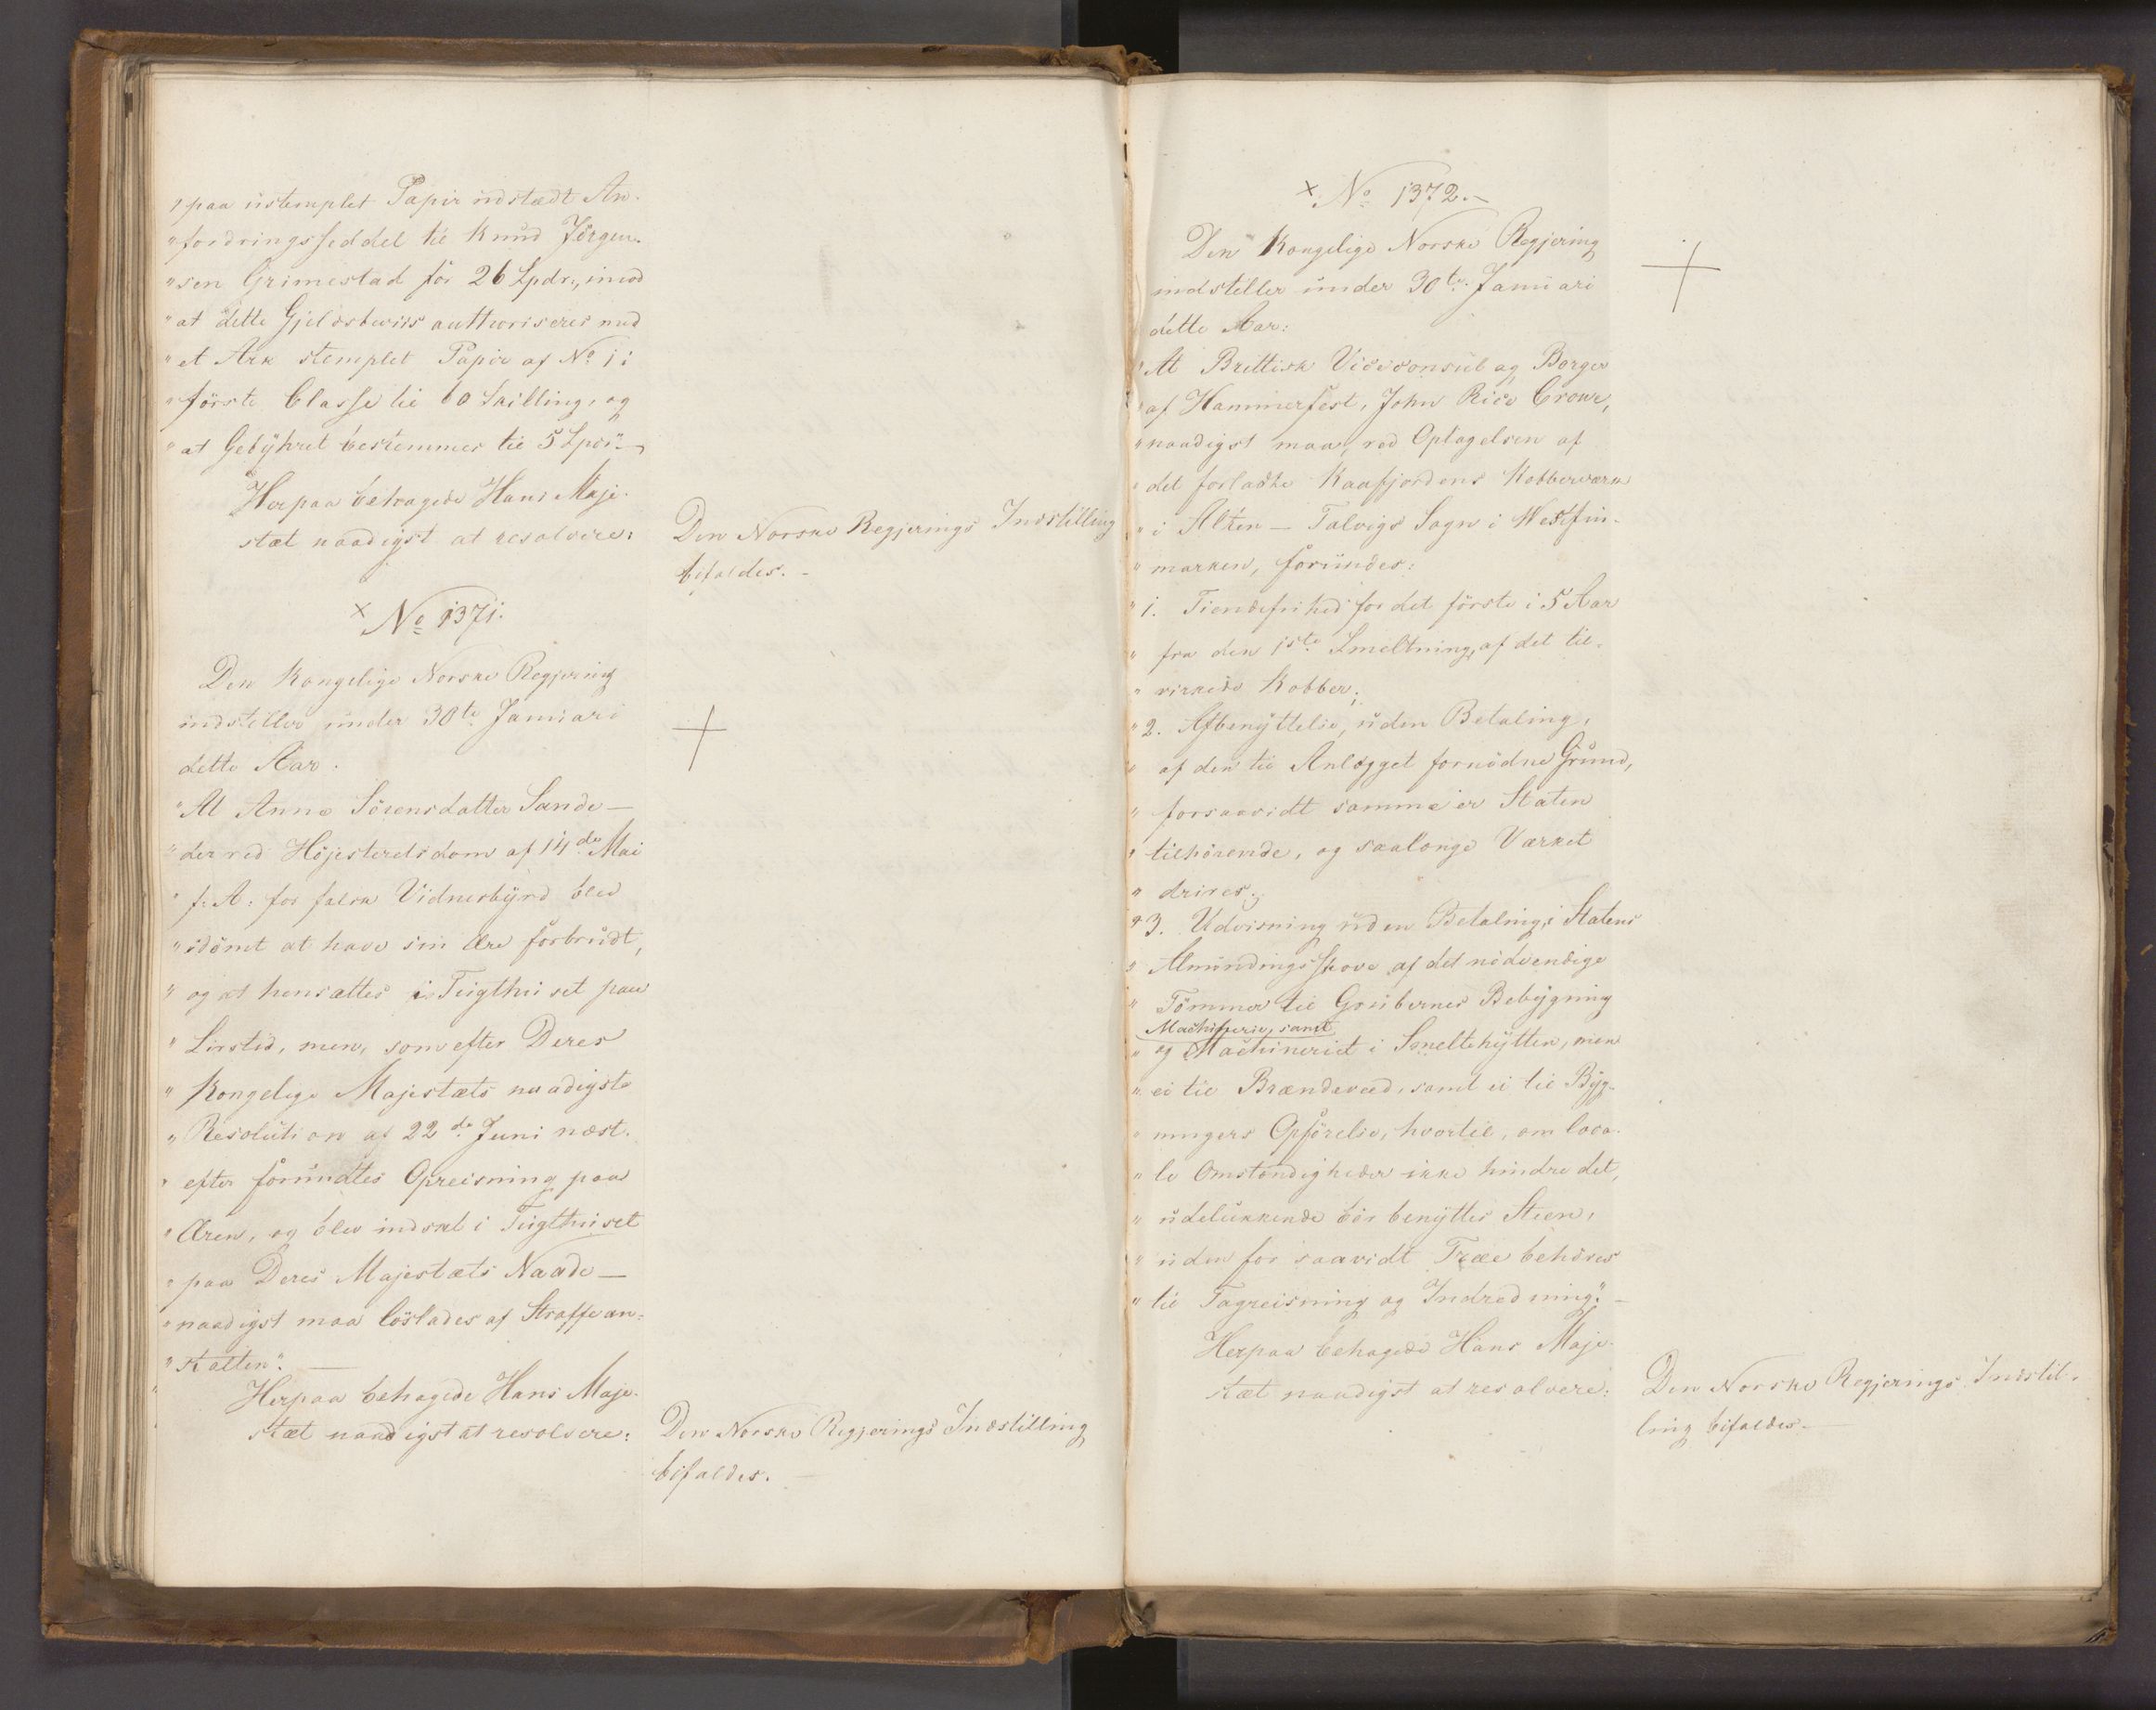 "paa ustemplet Papir udstædt An-
"fordringsseddel til Knud Jörgen-
"sen Grimestad for 26 Spdr., imod
"at dette Gjeldsbeviis authoriseres med
"et Ark stemplet Papir af No 1 i
"förste Classe til 60 Skilling, og
"at Gebyhret bestemmes til 5 Spdr." —
Herpaa behagede Hans Maje-
stæt naadigst at resolvere:
Den Norske Regjerings Indstilling
bifaldes. -
× No 1371.
Den Kongelige Norske Regjering
indstiller under 30te Januari
dette Aar:
"At Anne Sörensdatter Sande —
"der ved Höjesteretsdom af 14de Mai
"f: A: for falsk Vidnesbyrd blev
"idömt at have sin Ære forbrudt,
"og at hensættes i Tugthuset paa
"Livstid, men, som efter Deres
"Kongelige Majestæts naadigste
"Resolution af 22de Juni næst-
"efter forundtes Opreisning paa
"Æren, og blev indsat i Tugthuset
"paa Deres Majestæts Naade —
"naadigst maa löslades af Straffean-
"stalten". —
Herpaa behagede Hans Maje-
stæt naadigst at resolvere:
Den Norske Regjerings Indstilling
bifaldes. —
× No 1372. -
Den Kongelige Norske Regjering
indstiller under 30te Januari
dette Aar:
"At Brittisk Viceconsul og Borger
"af Hammerfest, John Rice Crowe,
"naadigst maa, ved Optagelsen af
"det forladte Kaafjordens Kobberværk
"i Alten - Talvigs Sogn i Westfin-
"marken, forundes:
"1. Tiendefrihed for det förste i 5 Aar
"fra den 1ste Smeltning, af det til-
"virkede Kobber;
"2. Afbenyttelse, uden Betaling,
"af den til Anlægget fornödne Grund,
"forsaavidt samme er Staten
"tilhörende, og saalænge Værket
"drives;
"3. Udvisning uden Betaling, i Statens
"Almindingsskove af det nödvendige
"Tömmer til Grubernes Bebygning
Machinerie, samt
"og Machineriet i Smeltehytten, men
"ei til Brændeved, samt ei til Byg-
"ningers Opförelse, hvortil, om loca-
"le Omstændigheder ikke hindre det,
"udelukkende bör benyttes Steen,
"uden for saavidt Træe behöves
"til Tagreisning og Indredning". —
Herpaa behagede Hans Maje-
stæt naadigst at resolvere:
Den Norske Regjerings Indstil-
ling bifaldes. —